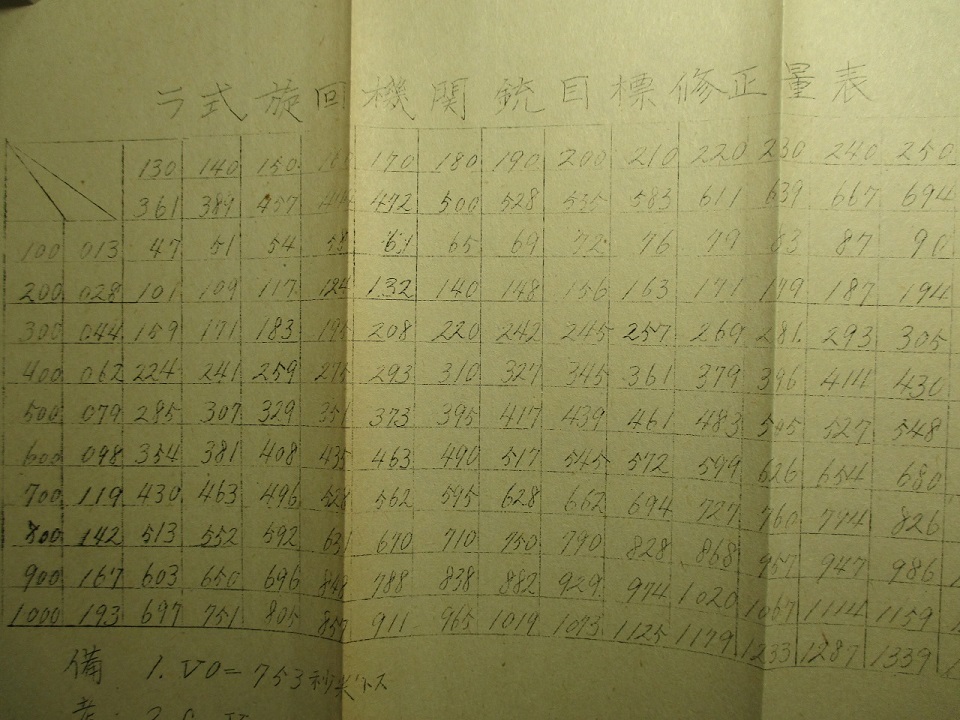 ラ式旋回機関銃目標修正量表
130 140 150 160 170 180 190 200 210 220 230 240 250
361 389 444 472 500 528 555 583 611 639 667 694
100 013 47 51 54 61 65 69 72 76 79 83 87 90
200 028 101 109 117 124 132 140 148 156 163 171 179 187 194
300 044 159 171 183 195 208 220 242 245 257 269 281 293 305
400 062 224 241 259 275 293 310 327 345 361 379 396 414 430
500 079 285 307 329 351 373 395 417 439 461 483 505 527 548
600 098 354 381 408 435 463 490 517 545 572 599 626 654 680
700 119 430 463 496 528 562 595 628 662 694 727 760 826
800 142 513 552 592 631 670 710 750 790 828 868 947 986
900 167 603 650 696 788 838 882 929 974 1020 1067 1114 1159
1000 193 697 751 805 857 911 965 1019 1073 1125 1179 1233 1287 1339
備 1. V0=753秒米トス